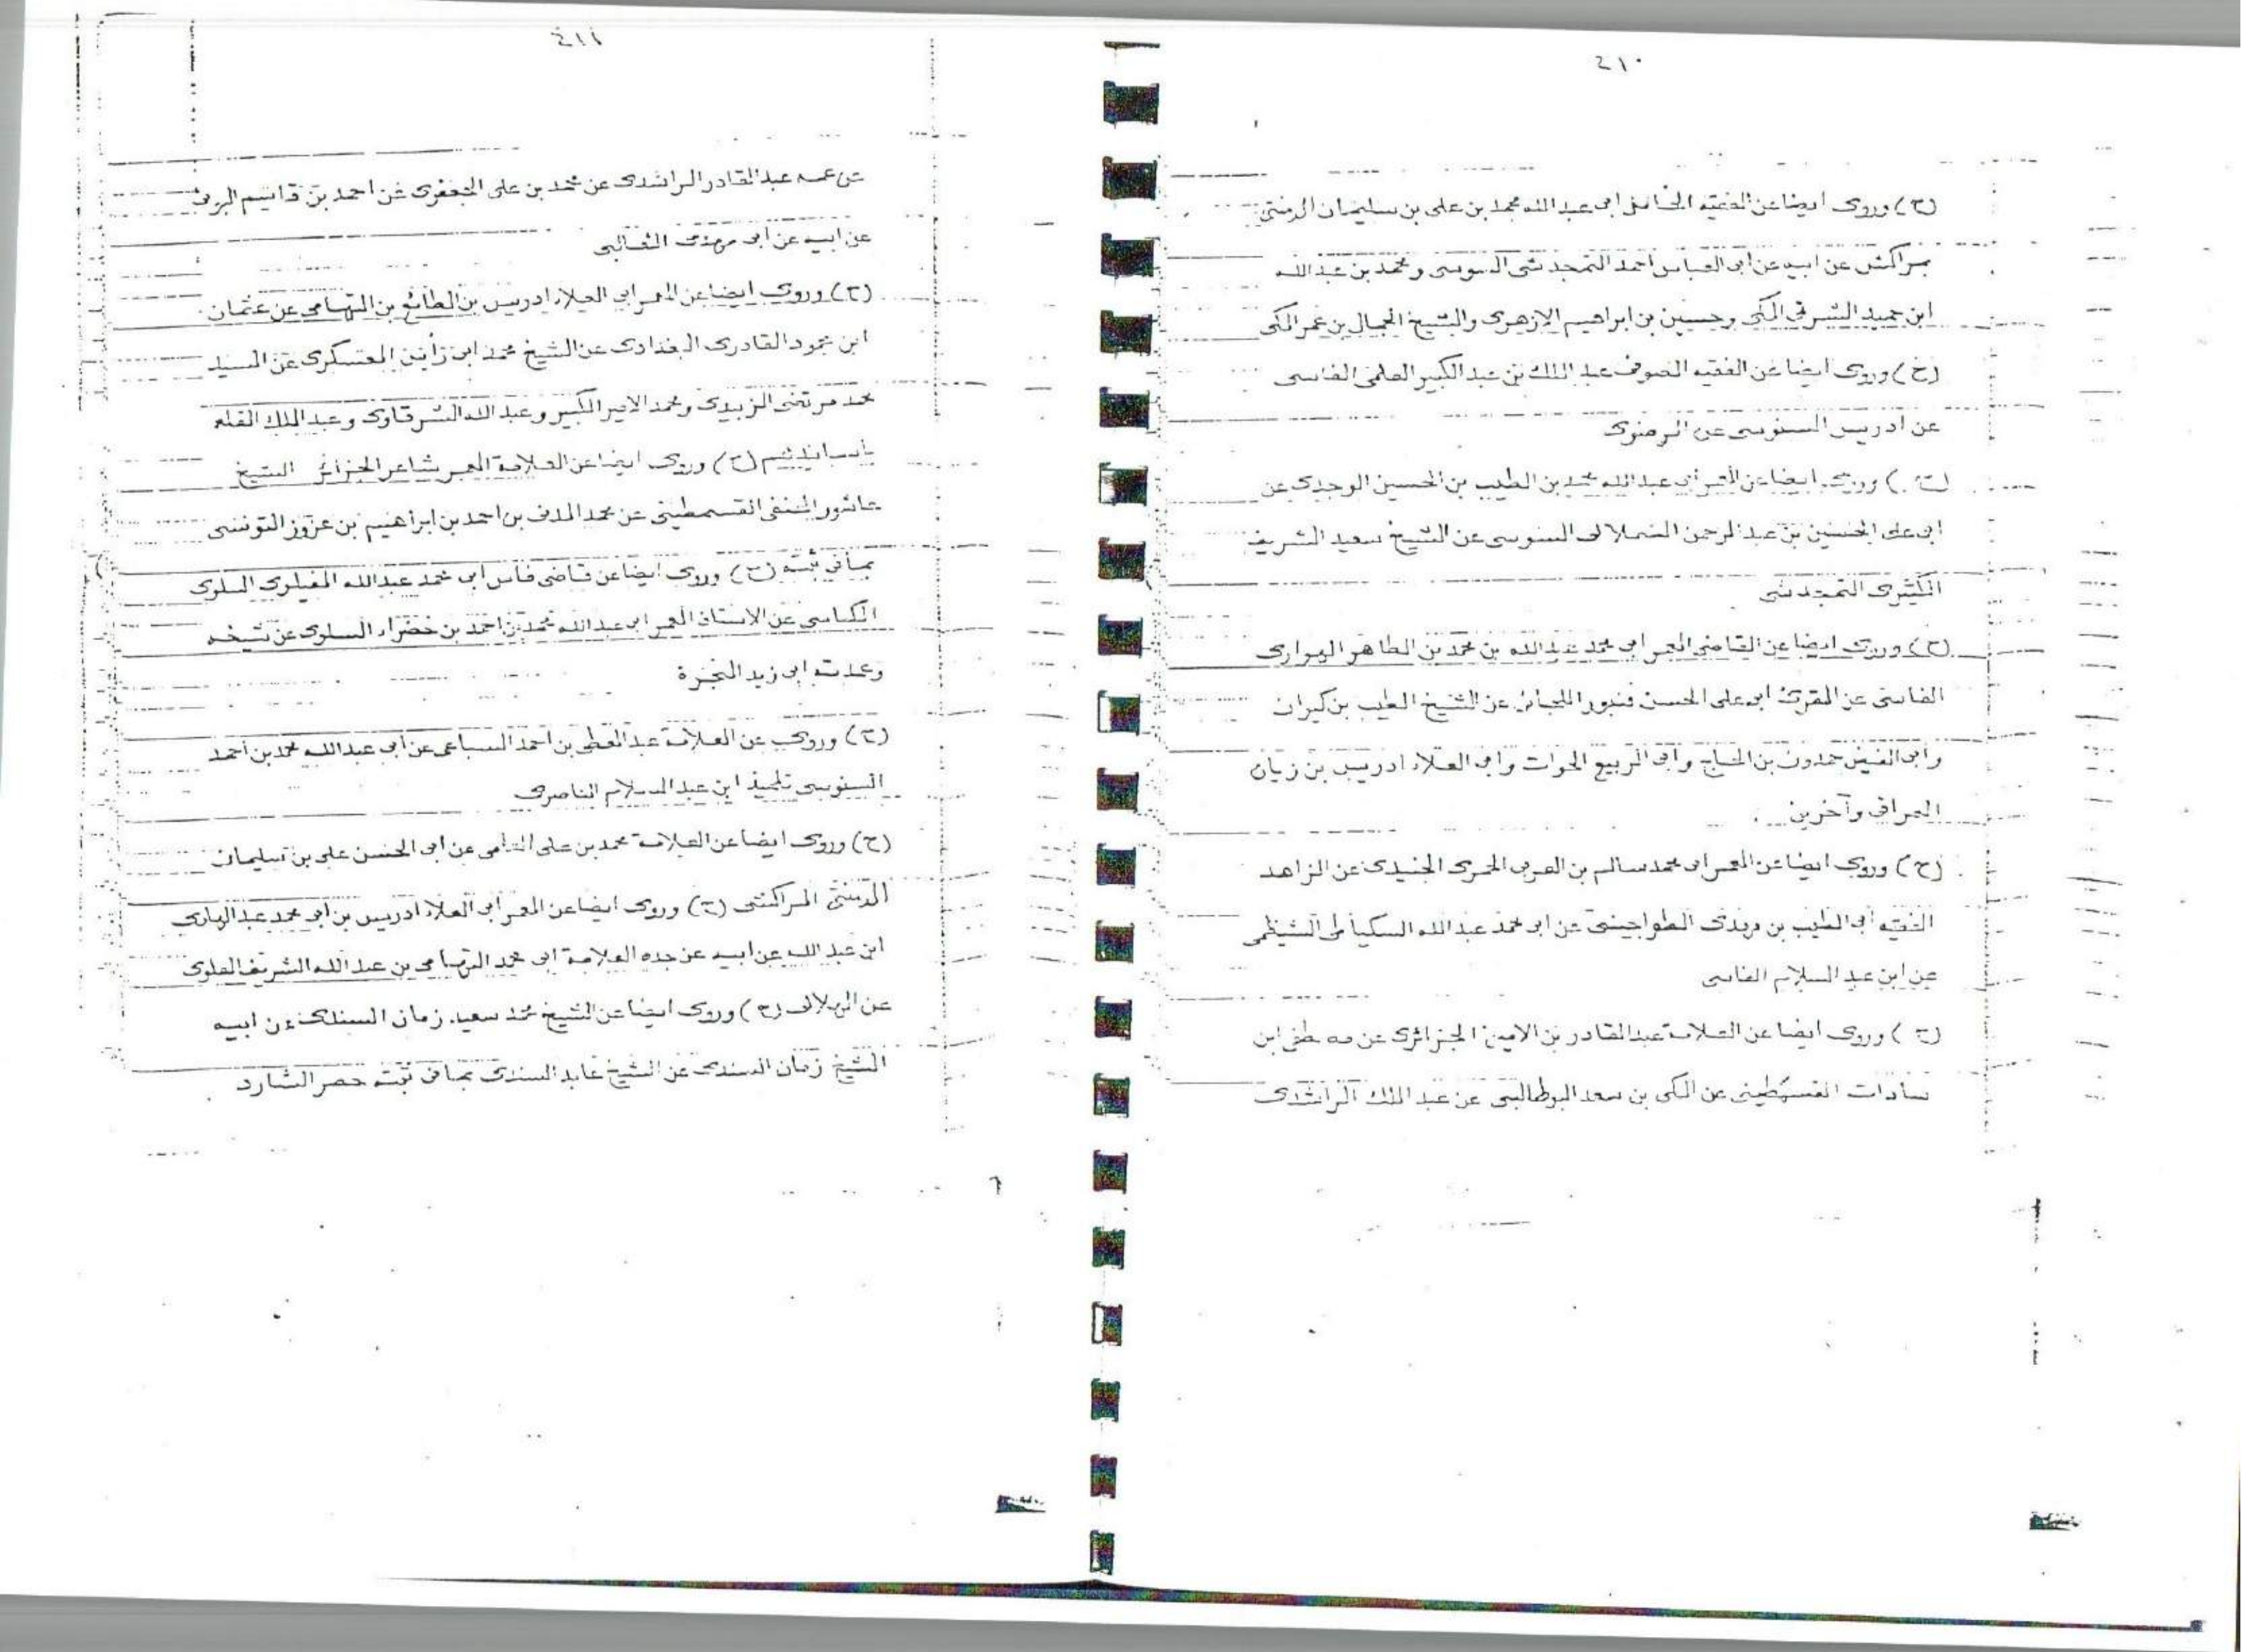 ٤١٠
(ح) وروى ايضا عن الفقيه الفاضل ابى عبد الله محمد بن على بن سليمان الدمنتى
بمراكش عن ابيه عن ابى العباس احمد التمجدشتى السوسى ومحمد بن عبد الله
ابن حميد الشرقى المكى وحسين بن ابراهيم الازهرى والشيخ الجمال بن عمر المكى
(ح) وروى ايضا عن الفقيه الصوفى عبد الملك بن عبد الكبير العلمى الفاسى
عن ادريس السنوسى عن الرضوى
(ح) وروى ايضا عن المعمر أبى عبد الله محمد بن الطيب بن الحسين الوجدى عن
ابى على الحسين بن عبد الرحمن السملالى السوسى عن الشيخ سعيد الشريف
الكثيرى التمجدشتى
(ح) وروى ايضا عن القاضى المعمر ابى محمد عبد الله بن محمد بن الطاهر الهوارى
الفاسى عن المقرئ ابى على الحسن اللجائى عن الشيخ الطيب بن كيران
وابى الفيض حمدون بن الحاج وابى الربيع الحوات وابى العلاء ادريس بن زيان
العراقى وآخرين
(ح) وروى ايضا عن المعمر ابى محمد سالم بن العربى الحمرى الجنيدى عن الزاهد
الفقيه أبى الطيب بن عن ابى محمد عبد الله السكياطى الشيظمى
عن ابن عبد السلام الفاسى
(ح) وروى ايضا عن العلامة عبد القادر بن الامين الجزائرى عن مصطفى ابن
سادات القسمطينى عن المكى بن سعد البوطالبى عن عبد الملك الراشدى
٤١١
عن عمه عبد القادر الراشدى عن محمد بن على الجعفرى عن احمد بن قاسم البونى
عن ابيه عن ابى مهدى الثعالبى
(ح) وروى ايضا عن المعمر ابى العلاء ادريس بن الطائع بن التهامى عن عثمان
ابن محمود القادرى البغدادى عن الشيخ محمد ابن المعسكرى عن السيد
محمد مرتضى الزبيدى ومحمد الامير الكبير وعبد الله الشرقاوى وعبد الملك القلعى
بأسانيدهم (ح) وروى ايضا عن العلامة المعمر شاعر الجزائر الشيخ
عاشور الخنقى القسمطينى عن محمد المدنى بن احمد بن ابراهيم بن عزوز التونسى
بما فى ثبته (ح) وروى ايضا عن قاضى فاس ابى محمد عبد الله السلوى
عن الاستاذ المعمر ابى عبد الله محمد بن احمد بن خضراء السلوى عن شيخه
وعمدته ابى زيد
(ح) وروى عن العلامة عبد المعطى بن احمد السباعى عن ابى عبد الله محمد بن احمد
السنوسى تلميذ ابن عبد السلام الناصرى
(ح) وروى ايضا عن العلامة محمد بن على عن ابى الحسن على بن سليمان
الدمنتى المراكشى (ح) وروى ايضا عن المعمر ابى العلاء ادريس بن ابى محمد عبد الهادى
ابن عبد الله عن ابيه عن جده العلامة ابى محمد التهامى بن عبد الله الشريف العلوى
عن الهلالى (ح) وروى ايضا عن الشيخ محمد سعيد زمان السندى عن ابيه
الشيخ زمان السندى عن الشيخ عابد السندى بما فى ثبته حصر الشارد